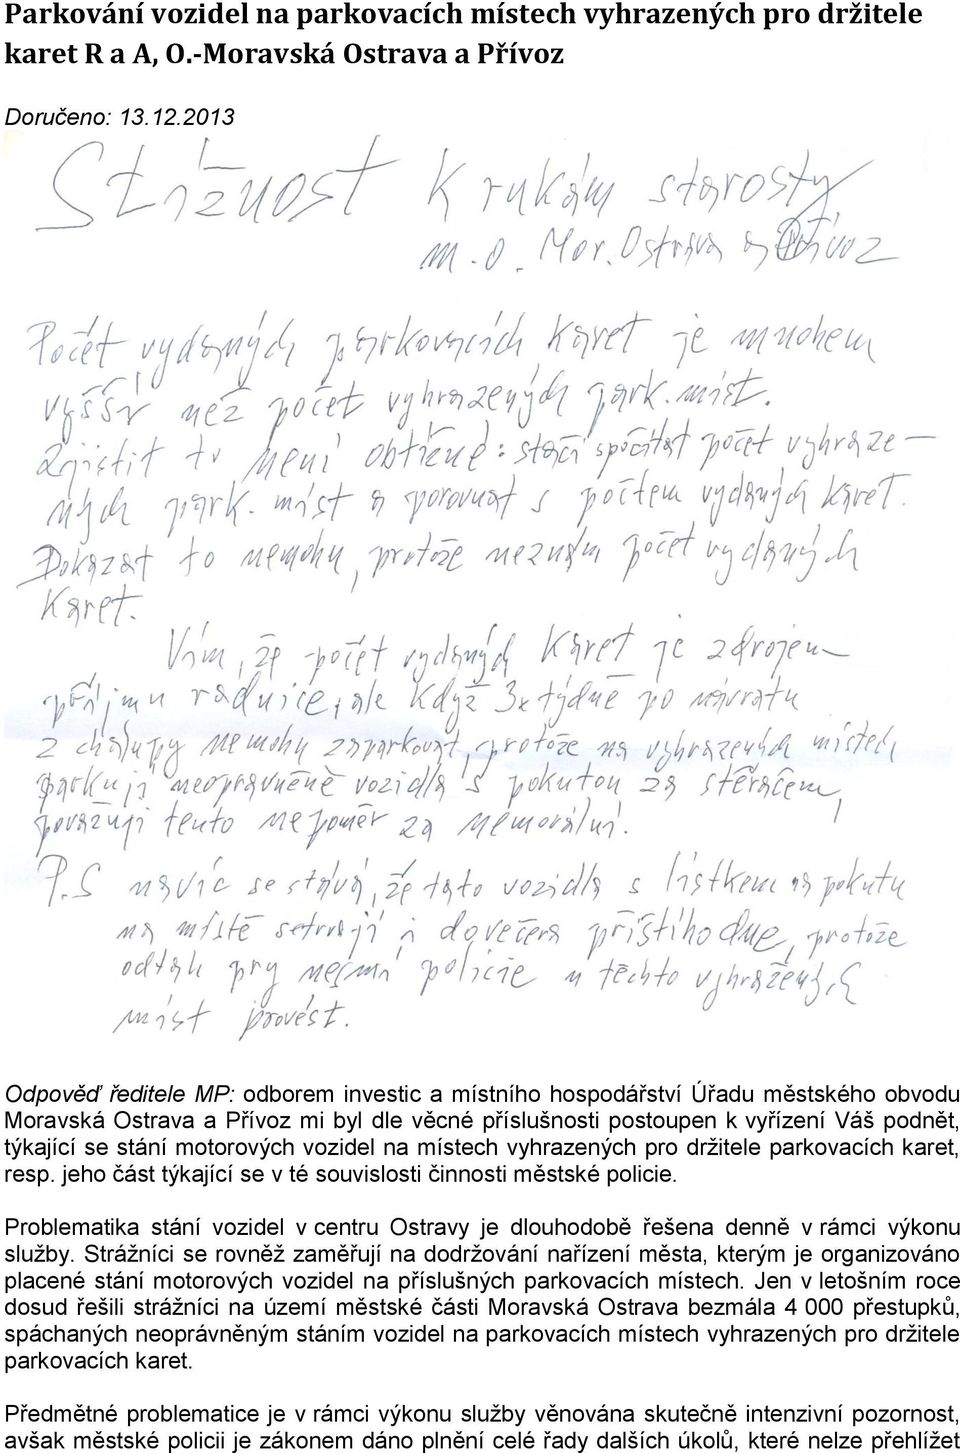 Parkování vozidel na parkovacích místech vyhrazených pro držitele
karet R a A, O.-Moravská Ostrava a Přívoz
Doručeno: 13.12.2013
Stížnost K rukám starosty
m.o. Mor. Ostrava a Přívoz
Počet vydaných parkovacích karet je mnohem
vyšší než počet vyhrazených park. míst.
Zjistit to není obtížné: stačí spočítat počet vyhraze-
ných park. míst a porovnat s počtem vydaných karet.
Dokázat to nemohu, protože neznám počet vydaných
karet.
Vím, že počet vydaných karet je zdrojem
příjmu radnice, ale když 3x týdně po návratu
z chalupy nemohu zaparkovat, protože na vyhrazených místech
parkují neoprávněně vozidla s pokutou za stěračem,
považuji tento nepoměr za nemorální.
P.S navíc se stává, že tato vozidla s lístkem na pokutu
na místě setrvají i do večera příštího dne, protože
odtah prý nesmí policie u těchto vyhražených
míst provést.
Odpověď ředitele MP: odborem investic a místního hospodářství Úřadu městského obvodu
Moravská Ostrava a Přívoz mi byl dle věcné příslušnosti postoupen k vyřízení Váš podnět,
týkající se stání motorových vozidel na místech vyhrazených pro držitele parkovacích karet,
resp. jeho část týkající se v té souvislosti činnosti městské policie.
Problematika stání vozidel v centru Ostravy je dlouhodobě řešena denně v rámci výkonu
služby. Strážníci se rovněž zaměřují na dodržování nařízení města, kterým je organizováno
placené stání motorových vozidel na příslušných parkovacích místech. Jen v letošním roce
dosud řešili strážníci na území městské části Moravská Ostrava bezmála 4 000 přestupků,
spáchaných neoprávněným stáním vozidel na parkovacích místech vyhrazených pro držitele
parkovacích karet.
Předmětné problematice je v rámci výkonu služby věnována skutečně intenzivní pozornost,
avšak městské policii je zákonem dáno plnění celé řady dalších úkolů, které nelze přehlížet